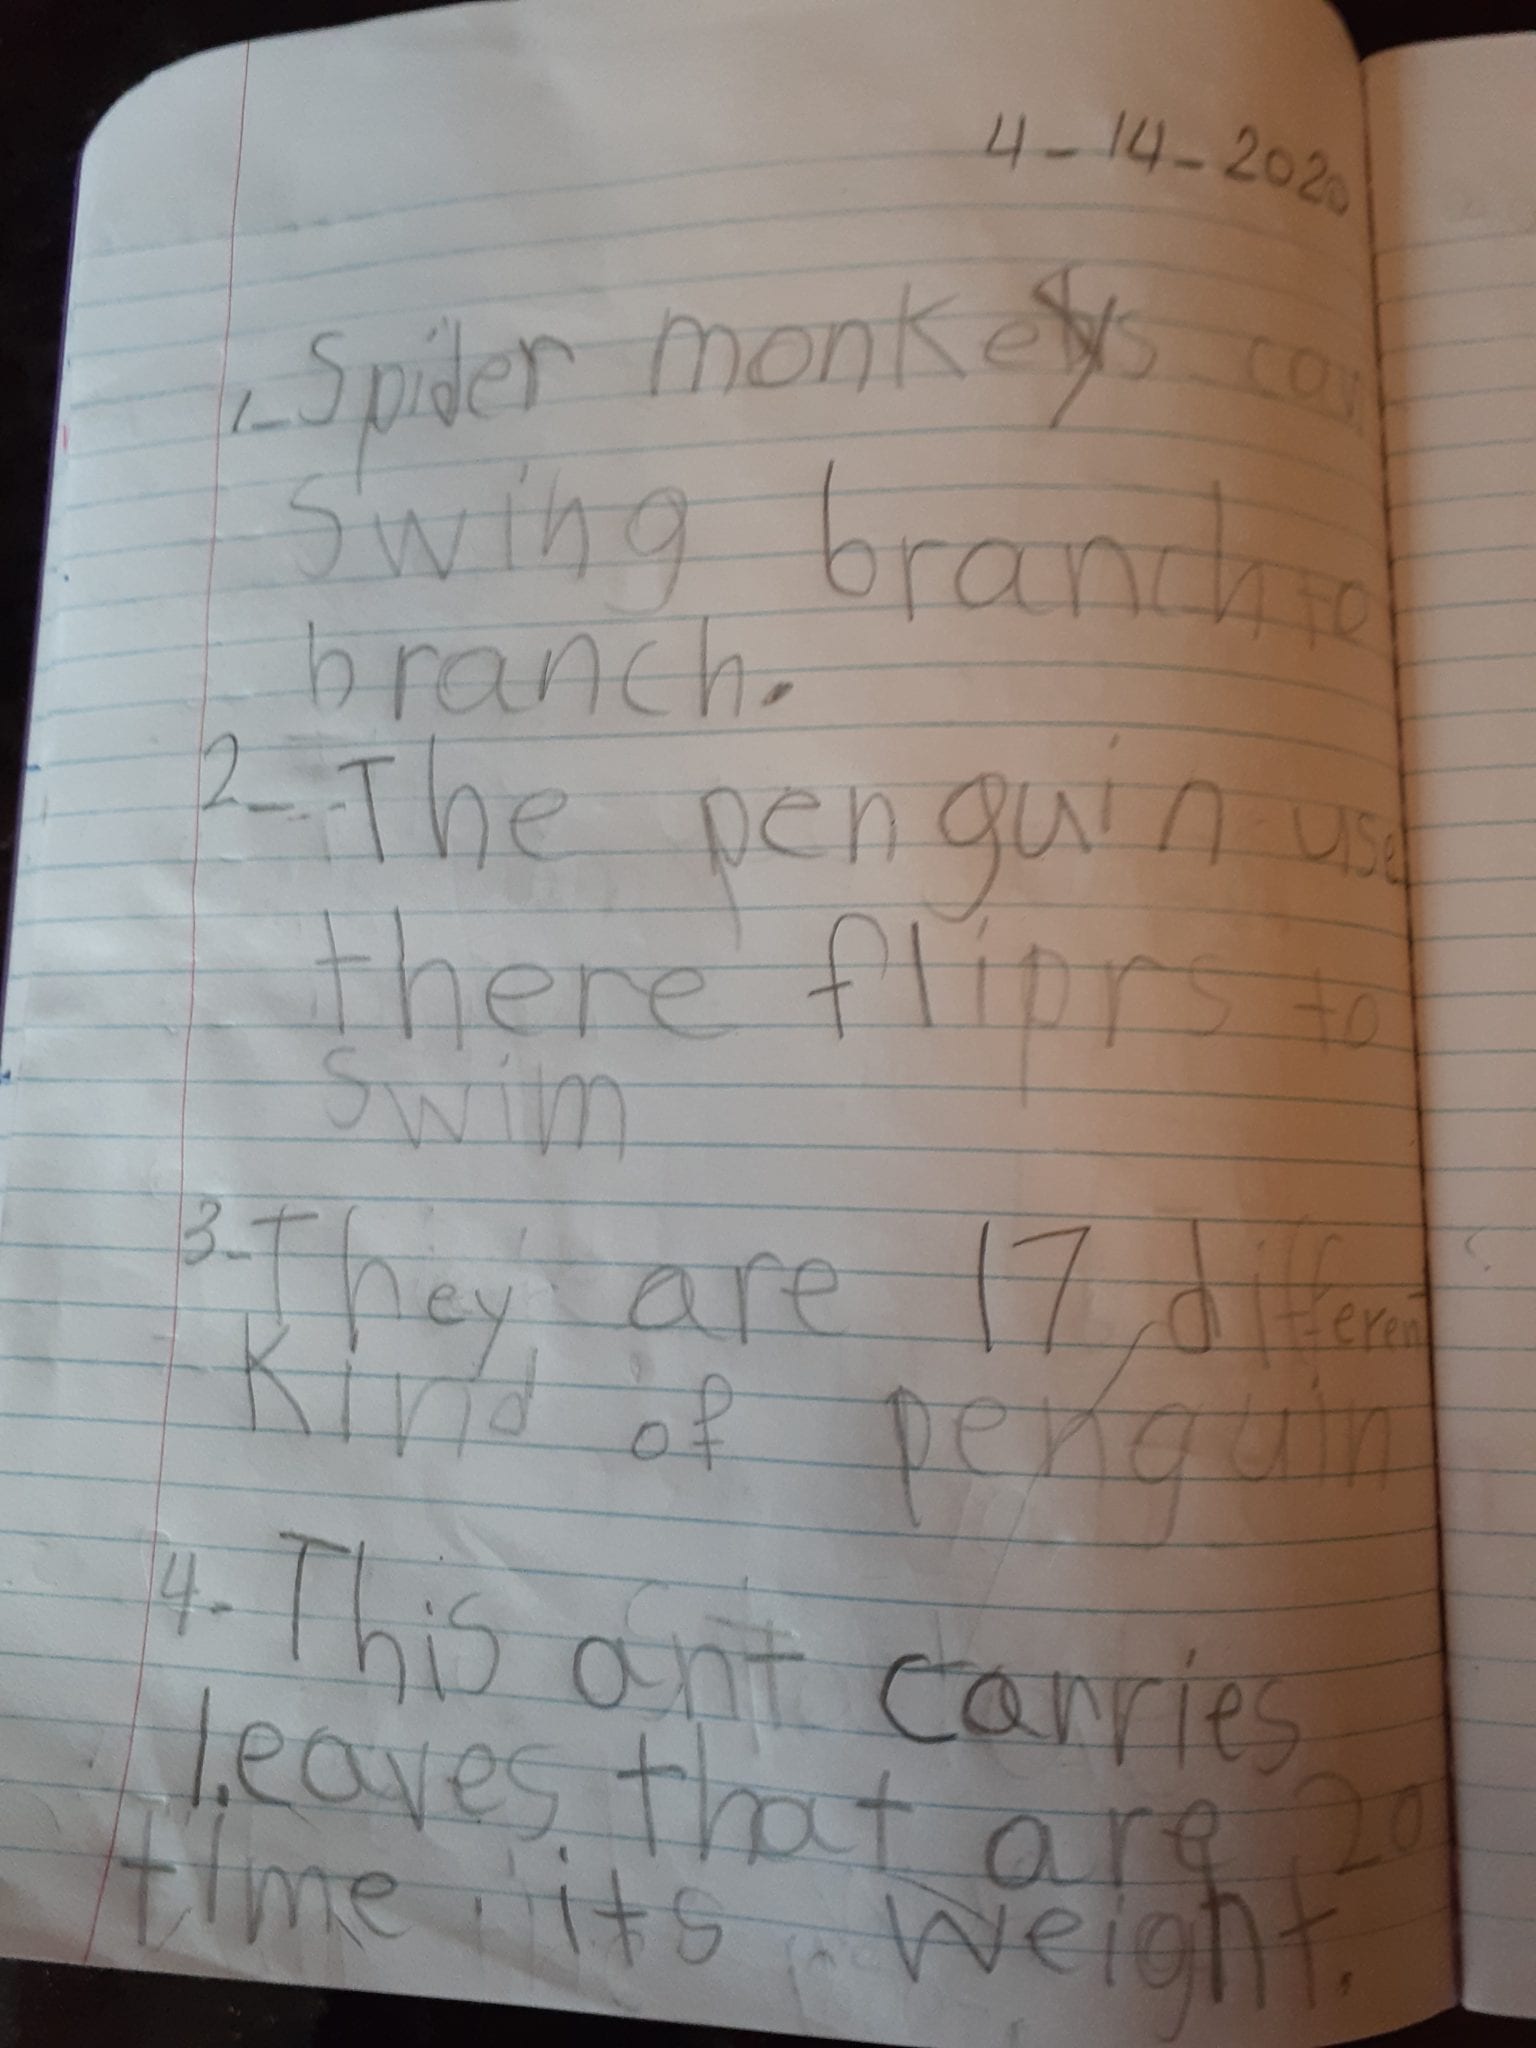 4-14-2020
1-Spider monkeys can
swing branch to
branch.
2-The penguin use
there fliprs to
swim
3-They are 17 different
Kind of penguin
4-This ant carries
leaves that are 20
time its weight.